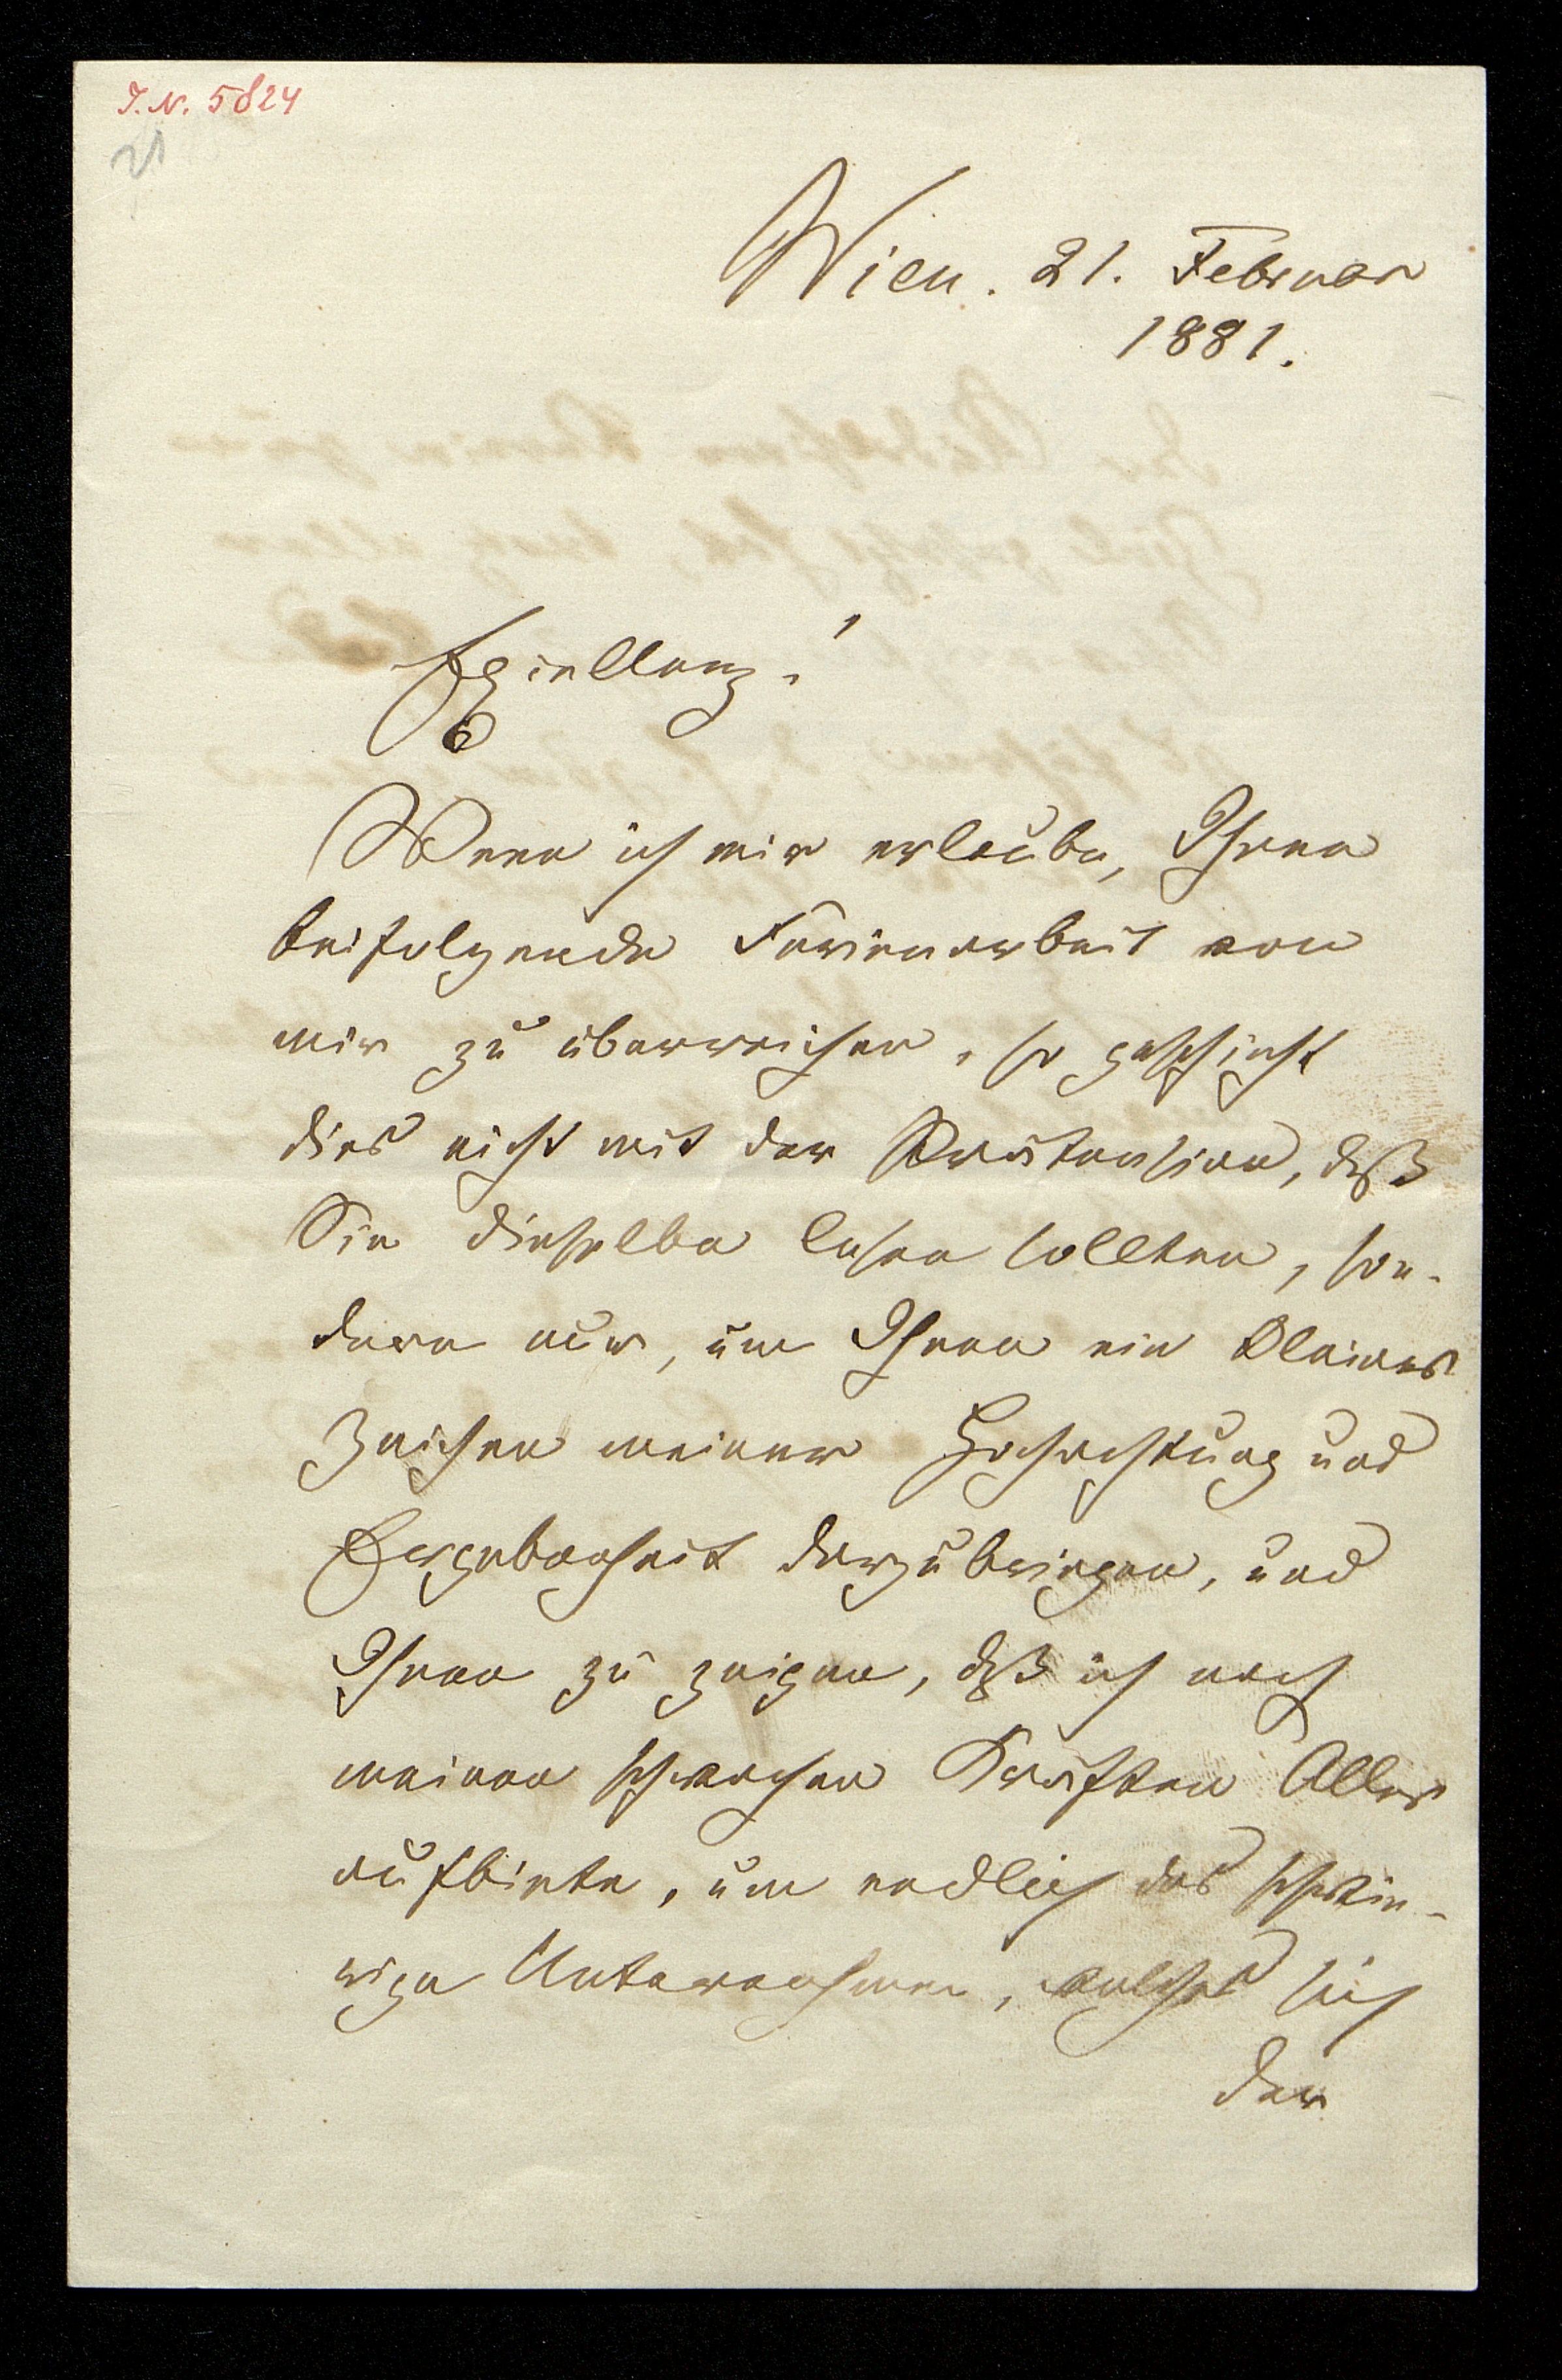 I.N. 5824
21
Wien. 21. Februar
1881.
Exzellenz!
Wenn ich mir erlaube, Ihnen
beifolgende Ferienarbeit von
mir zu überreichen, so geschieht
dies nicht mit der Prätension, daß
Sie dieselbe lesen sollten, son-
dern nur, um Ihnen ein kleines
Zeichen meiner Hochachtung und
Ergebenheit darzubringen, und
Ihnen zu zeigen, daß ich nach
meinen schwachen Kräften Alles
aufbiete, um endlich das schwie-
rige Unternehmen, welches sich
der